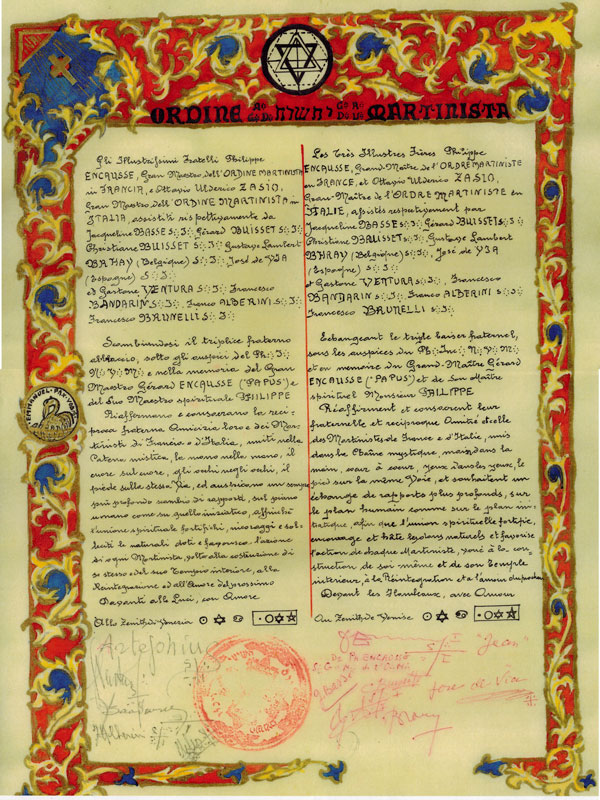 ORDINE יהשוה MARTINISTA
Gli Illustrissimi Fratelli Philippe
ENCAUSSE, Gran Maestro dell'ORDINE MARTINISTA
in FRANCIA, e Ottavio Ulderico ZASIO,
Gran Maestro dell'ORDINE MARTINISTA in
ITALIA, assistiti rispettivamente da
Jacqueline BASSE S∴I∴ Gérard BUISSET S∴I∴
Christiane BUISSET S∴I∴ Gustave Lambert
BRHAY (Belgique) S∴I∴ José de VIA
(Espagne) S∴I∴
ed Gastone VENTURA S∴I∴ Francesco
BANDARIN S∴I∴, Franco ALBERINI S∴I∴
Francesco BRUNELLI S∴I∴
Scambiandosi il triplice fraterno
abbraccio, sotto gli auspici del Ph∴I∴
N∴V∴M∴ e nella memoria del Gran
Maestro Gérard ENCAUSSE ("PAPUS") e
del Suo Maestro spirituale PHILIPPE
Riaffermano e consacrano la reci-
proca fraterna Amicizia loro e dei Mar-
tinisti di Francia e d'Italia, uniti nella
Catena mistica, la mano nella mano, il
cuore sul cuore, gli occhi negli occhi, il
piede sulla stessa Via, ed auspicano un sempre
più profondo scambio di rapporti, sul piano
umano come su quello iniziatico, affinché
l'unione spirituale fortifichi, incoraggi e sol-
leciti le naturali doti e favorisca l'azione
di ogni Martinista, volto alla costruzione di
se stesso e del suo Tempio interiore, alla
Reintegrazione ed all'Amore del prossimo
Davanti alle Luci, con Amore
Allo Zenith di Venezia
Les Très Illustres Frères Philippe
ENCAUSSE, Grand-Maître de l'ORDRE MARTINISTE
en FRANCE, et Ottavio Ulderico ZASIO,
Gran-Maître de l'ORDRE MARTINISTE en
ITALIE, assistés respectivement par
Jacqueline BASSE S∴I∴ Gérard BUISSET S∴I∴
Christiane BUISSET S∴I∴, Gustave Lambert
BHRAY (Belgique) S∴I∴, José de VIA
(Espagne) S∴I∴
et Gastone VENTURA S∴I∴, Francesco
BANDARIN S∴I∴ Franco ALBERINI S∴I∴
Francesco BRUNELLI S∴I∴
Echangeant le triple baiser fraternel,
sous les auspices du Ph∴Inc∴N∴V∴M∴
et en memoire du Grand-Maître Gérard
ENCAUSSE ("PAPUS") et de son Maître
spirituel Monsieur PHILIPPE
Réaffirment et consacrent leur
fraternelle et reciproque Amitié et celle
des Martinistes de France e d'Italie, unis
dans la Chaîne mystique, main dans la
main, cœur à cœur, yeux dans les yeux, le
pied sur la même Voie, et souhaitent un
échange de rapports plus profonds, sur
le plan humain comme sur le plan ini-
tiatique, afin que l'union spirituelle fortifie,
encourage et hâte les dons naturels et favorise
l'action de chaque Martiniste, voué à la con-
struction de soi même et de son Temple
intérieur, à la Réintegration et à l'amour du prochain
Devant les Flambeaux, avec Amour
Au Zenith de Venise
Artephius
"Jean"
Jose de Via